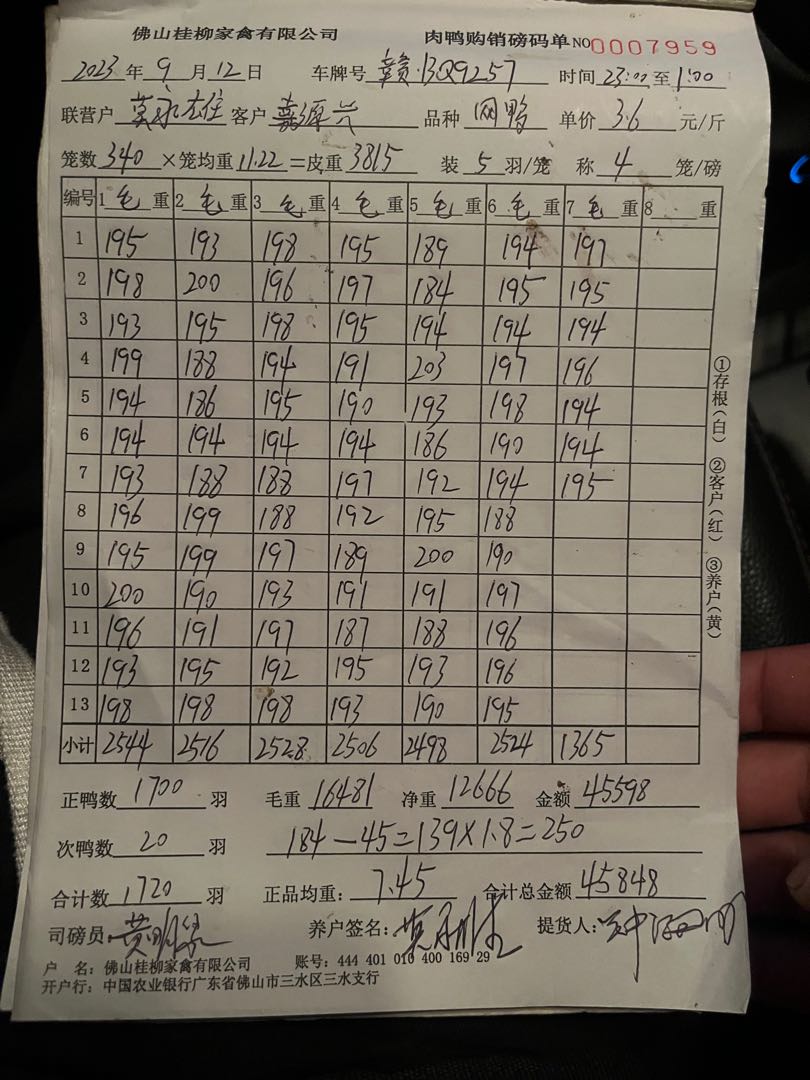 佛山桂柳家禽有限公司 肉鸭购销磅码单 NO 0007959
2023 年 9 月 12 日 车牌号 赣·BQ9257 时间 23:00 至 1:00
联营户 莫永雄 客户 嘉源兴 品种 网鸭 单价 3.6 元/斤
笼数 340 ×笼均重 11.22 =皮重 3815 装 5 羽/笼 称 4 笼/磅
编号 1 毛 重 2 毛 重 3 毛 重 4 毛 重 5 毛 重 6 毛 重 7 毛 重 8 重
1 195 193 198 195 189 194 197
2 198 200 196 197 184 195 195
3 193 195 198 195 194 194 194
4 199 188 194 191 203 197 196
5 194 186 195 190 193 198 194
6 194 194 194 194 186 190 194
7 193 188 188 197 192 194 195
8 196 199 188 192 195 188
9 195 199 197 189 200 190
10 200 190 193 191 191 197
11 196 191 197 187 188 196
12 193 195 192 195 193 196
13 198 198 198 193 190 195
小计 2544 2516 2528 2506 2498 2524 1365
①存根(白) ②客户(红) ③养户(黄)
正鸭数 1700 羽 毛重 16481 净重 12666 金额 45598
次鸭数 20 羽 184-45=139×1.8=250
合计数 1720 羽 正品均重: 7.45 合计总金额 45848
司磅员: 黄明 养户签名: 莫永雄 提货人:
户 名: 佛山桂柳家禽有限公司 账号: 444 401 010 400 169 29
开户行: 中国农业银行广东省佛山市三水区三水支行